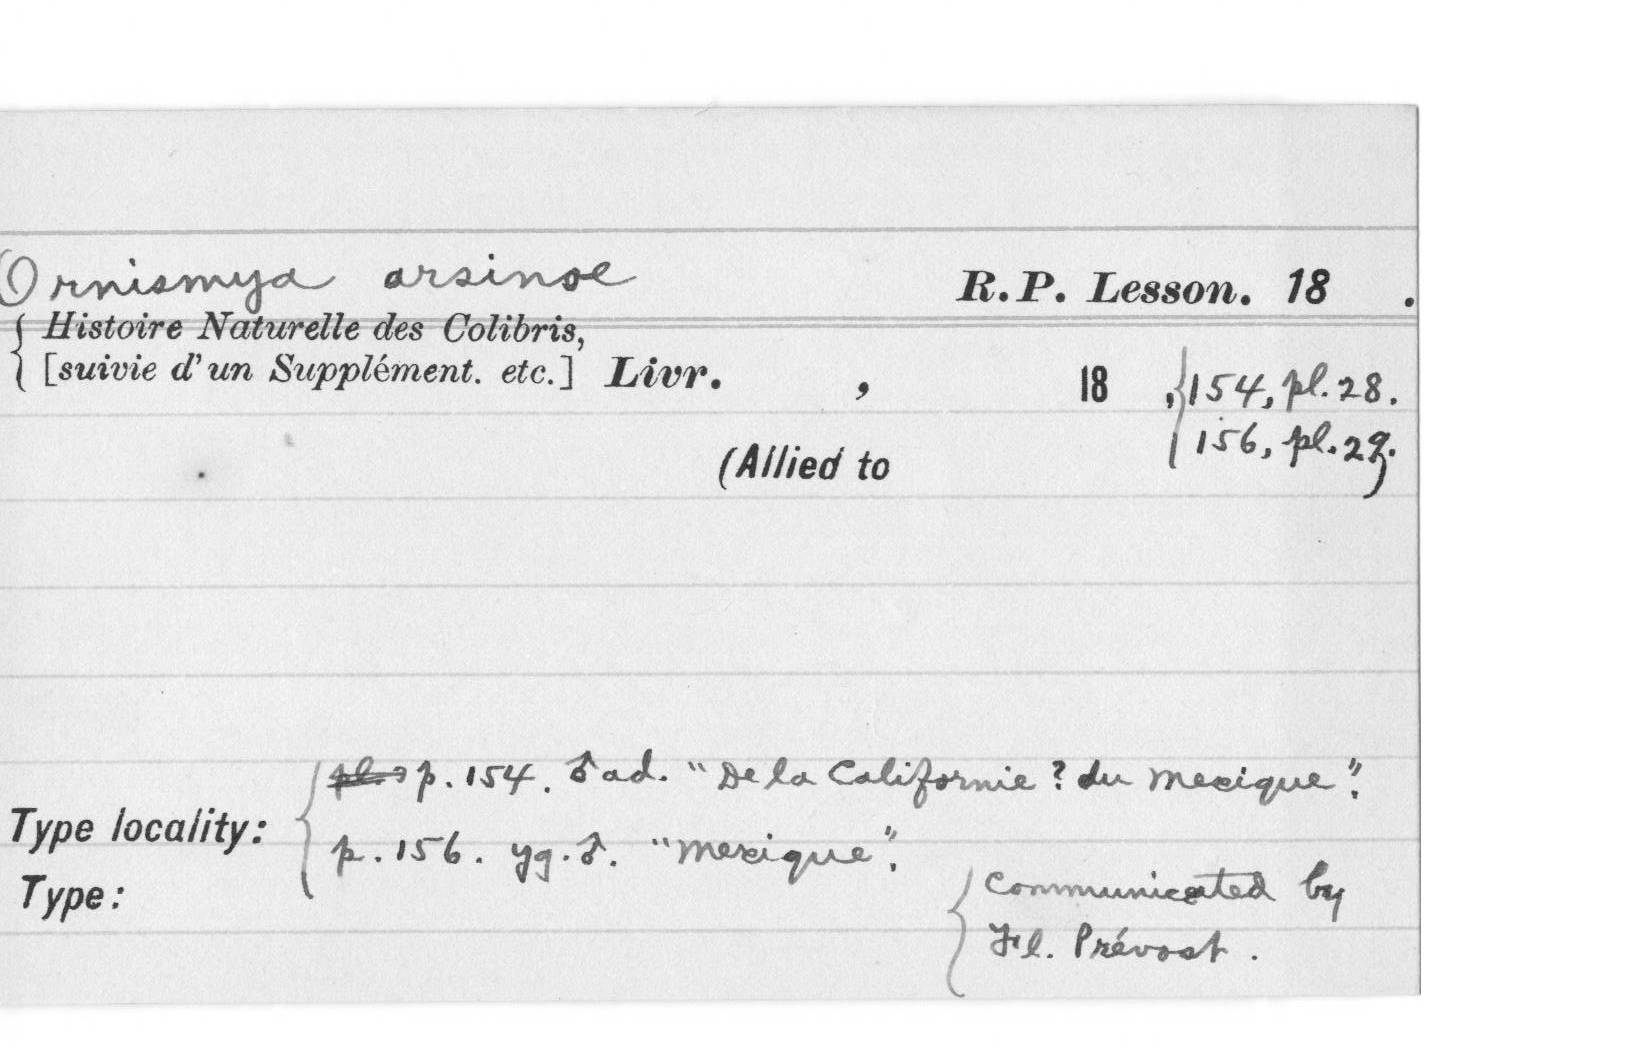 Ornismya arsinoe R.P. Lesson. 18 .
{ Histoire Naturelle des Colibris,
[suivie d'un Supplément. etc.] Livr. , 18 , { 154, pl. 28.
156, pl. 29.
(Allied to )
p. 154. ♂ ad. "De la Californie ? du Mexique".
Type locality: {
p. 156. yg. ♂. "Mexique".
Type: { Communicated by
Fl. Prévost .